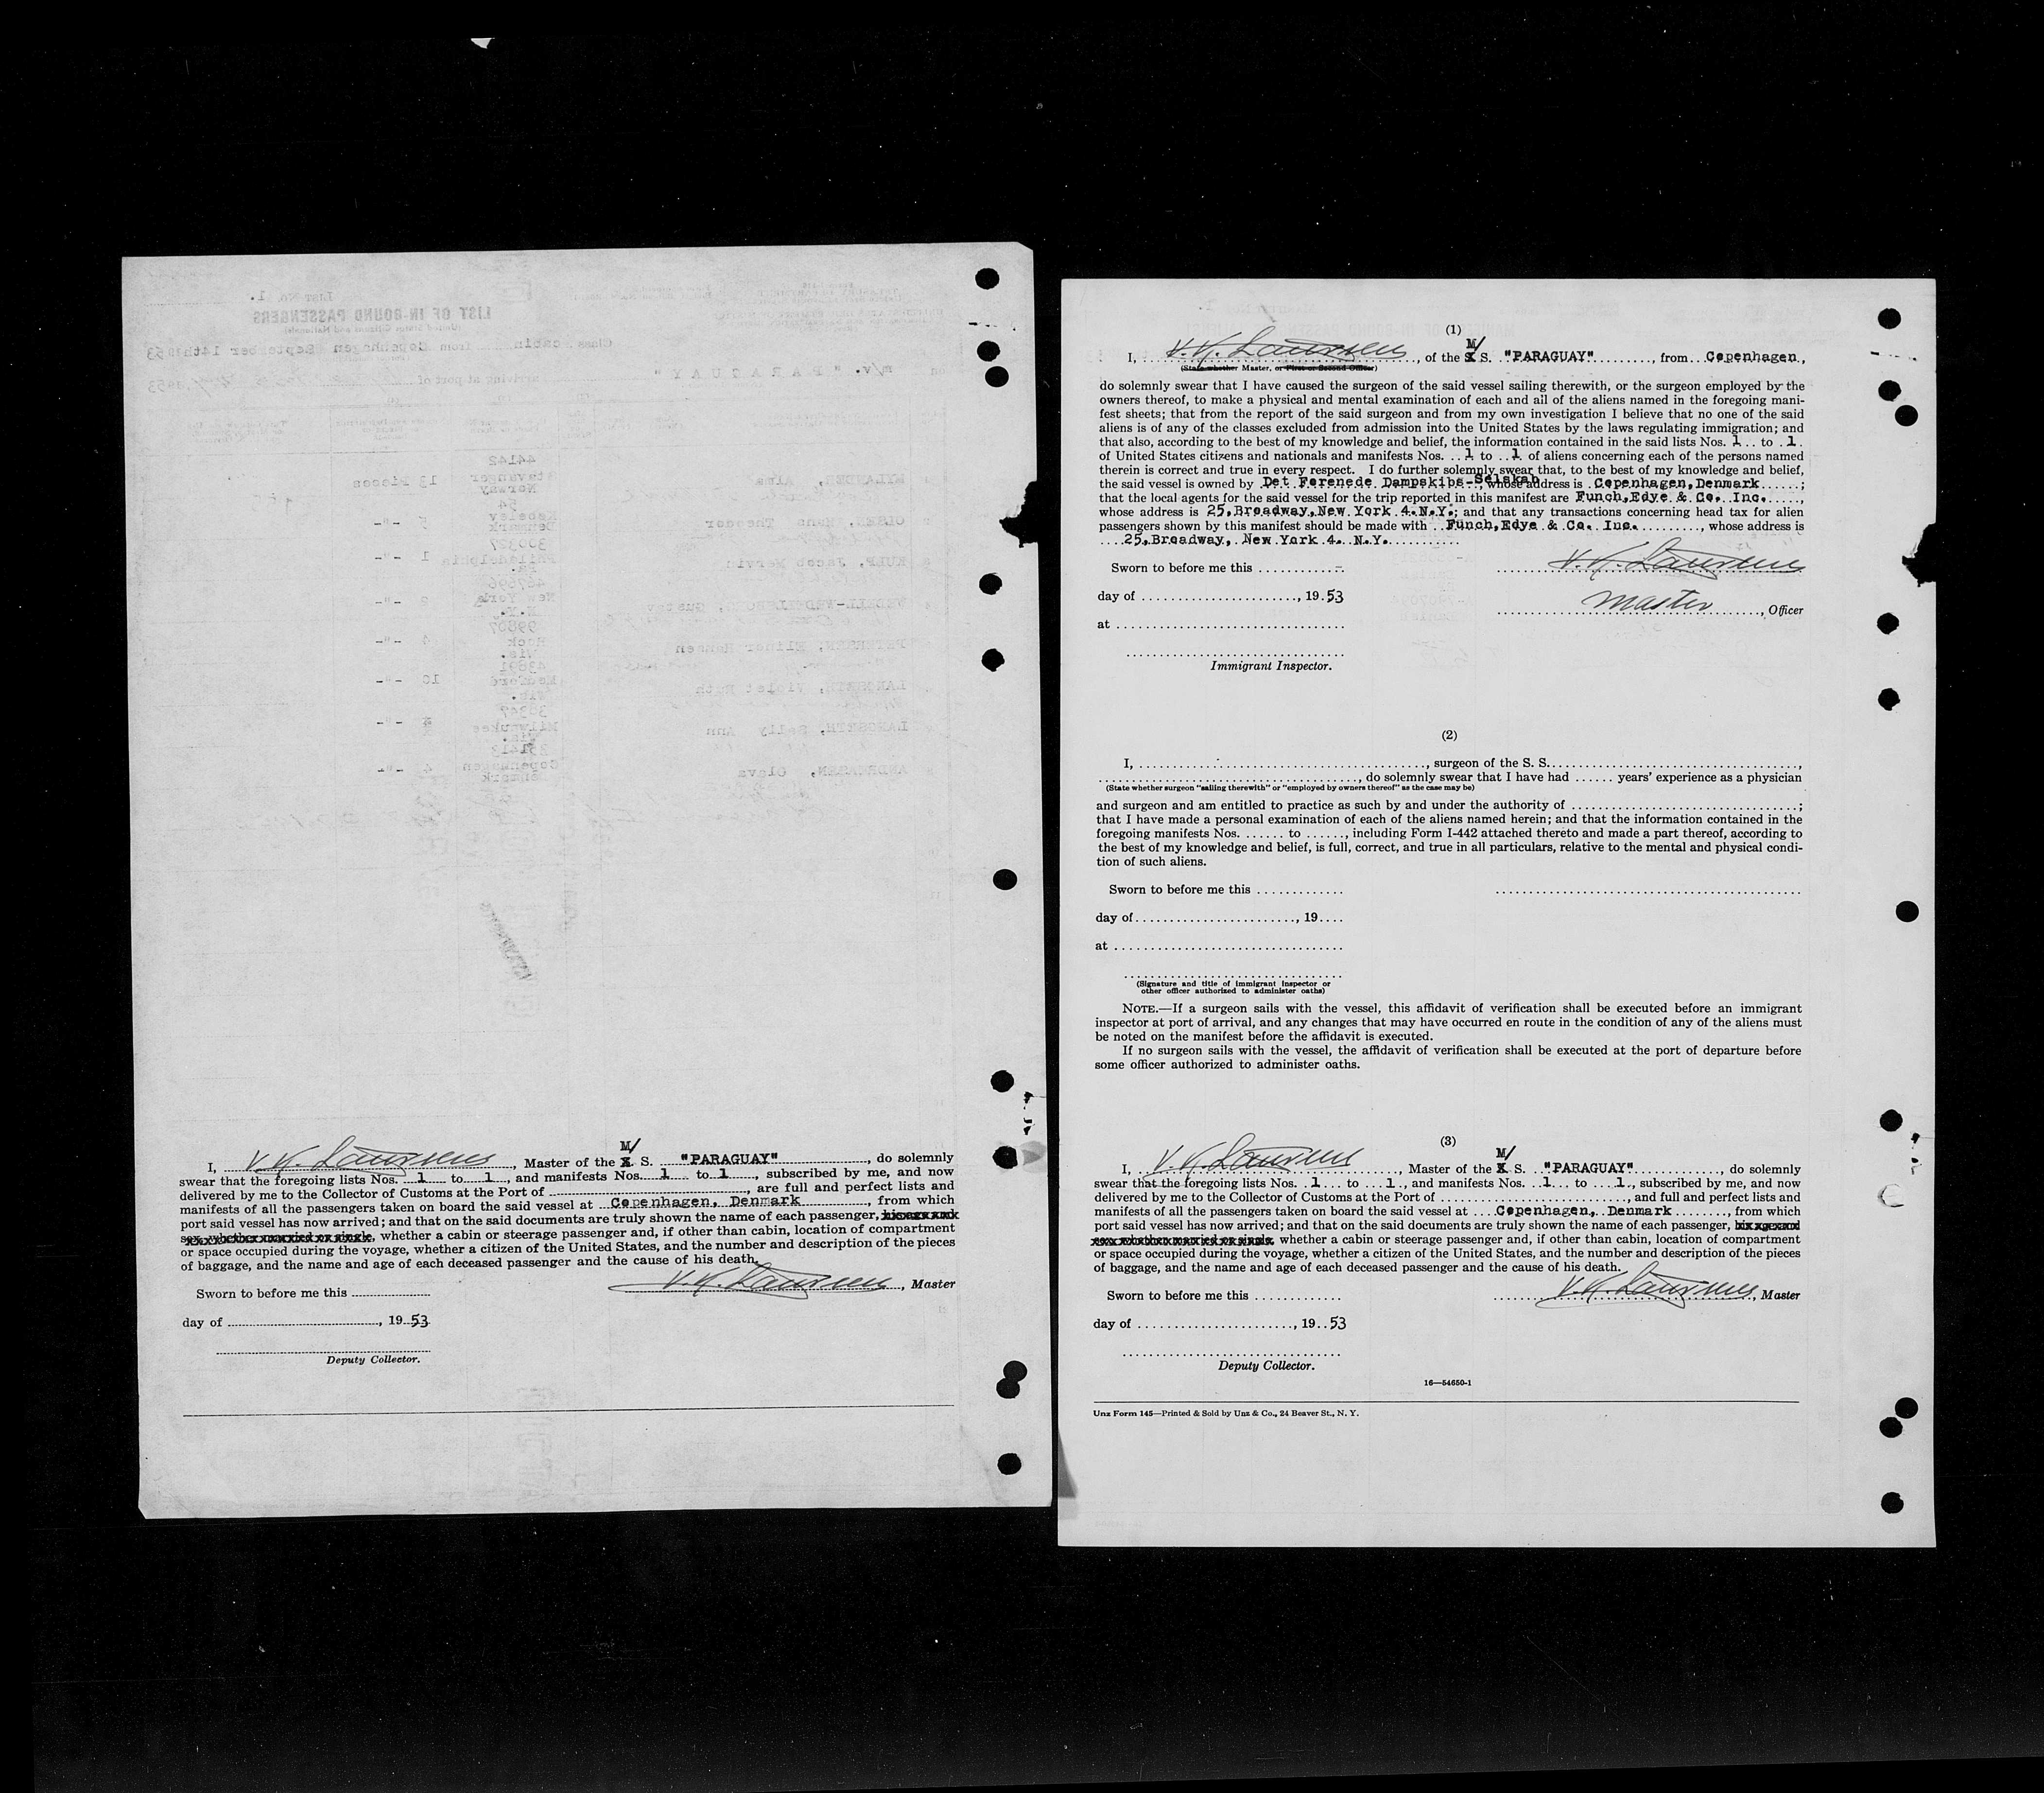 I, V. K. Laursen, Master of the M/ X. S. "PARAGUAY", do solemnly
swear that the foregoing lists Nos. 1 to 1, and manifests Nos. 1 to 1, subscribed by me, and now
delivered by me to the Collector of Customs at the Port of ............, are full and perfect lists and
manifests of all the passengers taken on board the said vessel at Copenhagen, Denmark, from which
port said vessel has now arrived; and that on the said documents are truly shown the name of each passenger,
sex, whether married or single, whether a cabin or steerage passenger and, if other than cabin, location of compartment
or space occupied during the voyage, whether a citizen of the United States, and the number and description of the pieces
of baggage, and the name and age of each deceased passenger and the cause of his death.
V. K. Laursen, Master
Sworn to before me this ............
day of ............, 19 53
Deputy Collector.
(1)
I, V. K. Laursen, of the M/ X S. "PARAGUAY", from Copenhagen,
(State whether Master, or First or Second Officer)
do solemnly swear that I have caused the surgeon of the said vessel sailing therewith, or the surgeon employed by the
owners thereof, to make a physical and mental examination of each and all of the aliens named in the foregoing mani-
fest sheets; that from the report of the said surgeon and from my own investigation I believe that no one of the said
aliens is of any of the classes excluded from admission into the United States by the laws regulating immigration; and
that also, according to the best of my knowledge and belief, the information contained in the said lists Nos. 1 to 1.
of United States citizens and nationals and manifests Nos. 1 to 1 of aliens concerning each of the persons named
therein is correct and true in every respect. I do further solemnly swear that, to the best of my knowledge and belief,
the said vessel is owned by Det Forenede Dampskibs-Selskab, whose address is Copenhagen, Denmark;
that the local agents for the said vessel for the trip reported in this manifest are Funch, Edye & Co. Inc.,
whose address is 25, Broadway, New York 4. N.Y.; and that any transactions concerning head tax for alien
passengers shown by this manifest should be made with Funch, Edye & Co. Inc., whose address is
25, Broadway, New York 4. N.Y.
Sworn to before me this ............
V. K. Laursen
day of ............, 19 53
Master, Officer
at ............
Immigrant Inspector.
(2)
I, ............, surgeon of the S. S. ............,
............, do solemnly swear that I have had ...... years' experience as a physician
(State whether surgeon "sailing therewith" or "employed by owners thereof" as the case may be)
and surgeon and am entitled to practice as such by and under the authority of ............;
that I have made a personal examination of each of the aliens named herein; and that the information contained in the
foregoing manifests Nos. ...... to ......, including Form I-442 attached thereto and made a part thereof, according to
the best of my knowledge and belief, is full, correct, and true in all particulars, relative to the mental and physical condi-
tion of such aliens.
Sworn to before me this ............
day of ............, 19....
at ............
(Signature and title of immigrant inspector or
other officer authorized to administer oaths)
NOTE.—If a surgeon sails with the vessel, this affidavit of verification shall be executed before an immigrant
inspector at port of arrival, and any changes that may have occurred en route in the condition of any of the aliens must
be noted on the manifest before the affidavit is executed.
If no surgeon sails with the vessel, the affidavit of verification shall be executed at the port of departure before
some officer authorized to administer oaths.
(3)
I, V. K. Laursen, Master of the M/ X S. "PARAGUAY", do solemnly
swear that the foregoing lists Nos. 1 to 1., and manifests Nos. 1 to 1., subscribed by me, and now
delivered by me to the Collector of Customs at the Port of ............, and full and perfect lists and
manifests of all the passengers taken on board the said vessel at Copenhagen, Denmark, from which
port said vessel has now arrived; and that on the said documents are truly shown the name of each passenger,
sex, whether married or single, whether a cabin or steerage passenger and, if other than cabin, location of compartment
or space occupied during the voyage, whether a citizen of the United States, and the number and description of the pieces
of baggage, and the name and age of each deceased passenger and the cause of his death.
V. K. Laursen, Master
Sworn to before me this ............
day of ............, 19 53
Deputy Collector.
16—54650-1
Unz Form 145—Printed & Sold by Unz & Co., 24 Beaver St., N. Y.